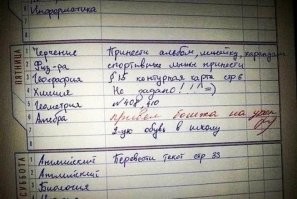 Информатика
ПЯТНИЦА
1 Черчение Принести альбом, линейку, карандаш
2 Физ-ра спортивные принести
3 География §15 контурная карта стр 6.
4 Химия Не задано! ! ! =)
5 Геометрия № 408, 410
6 Алгебра на
2-ую обувь в школу
СУББОТА
1 Английский Перевести текст стр 33
2 Английский
3 Биология